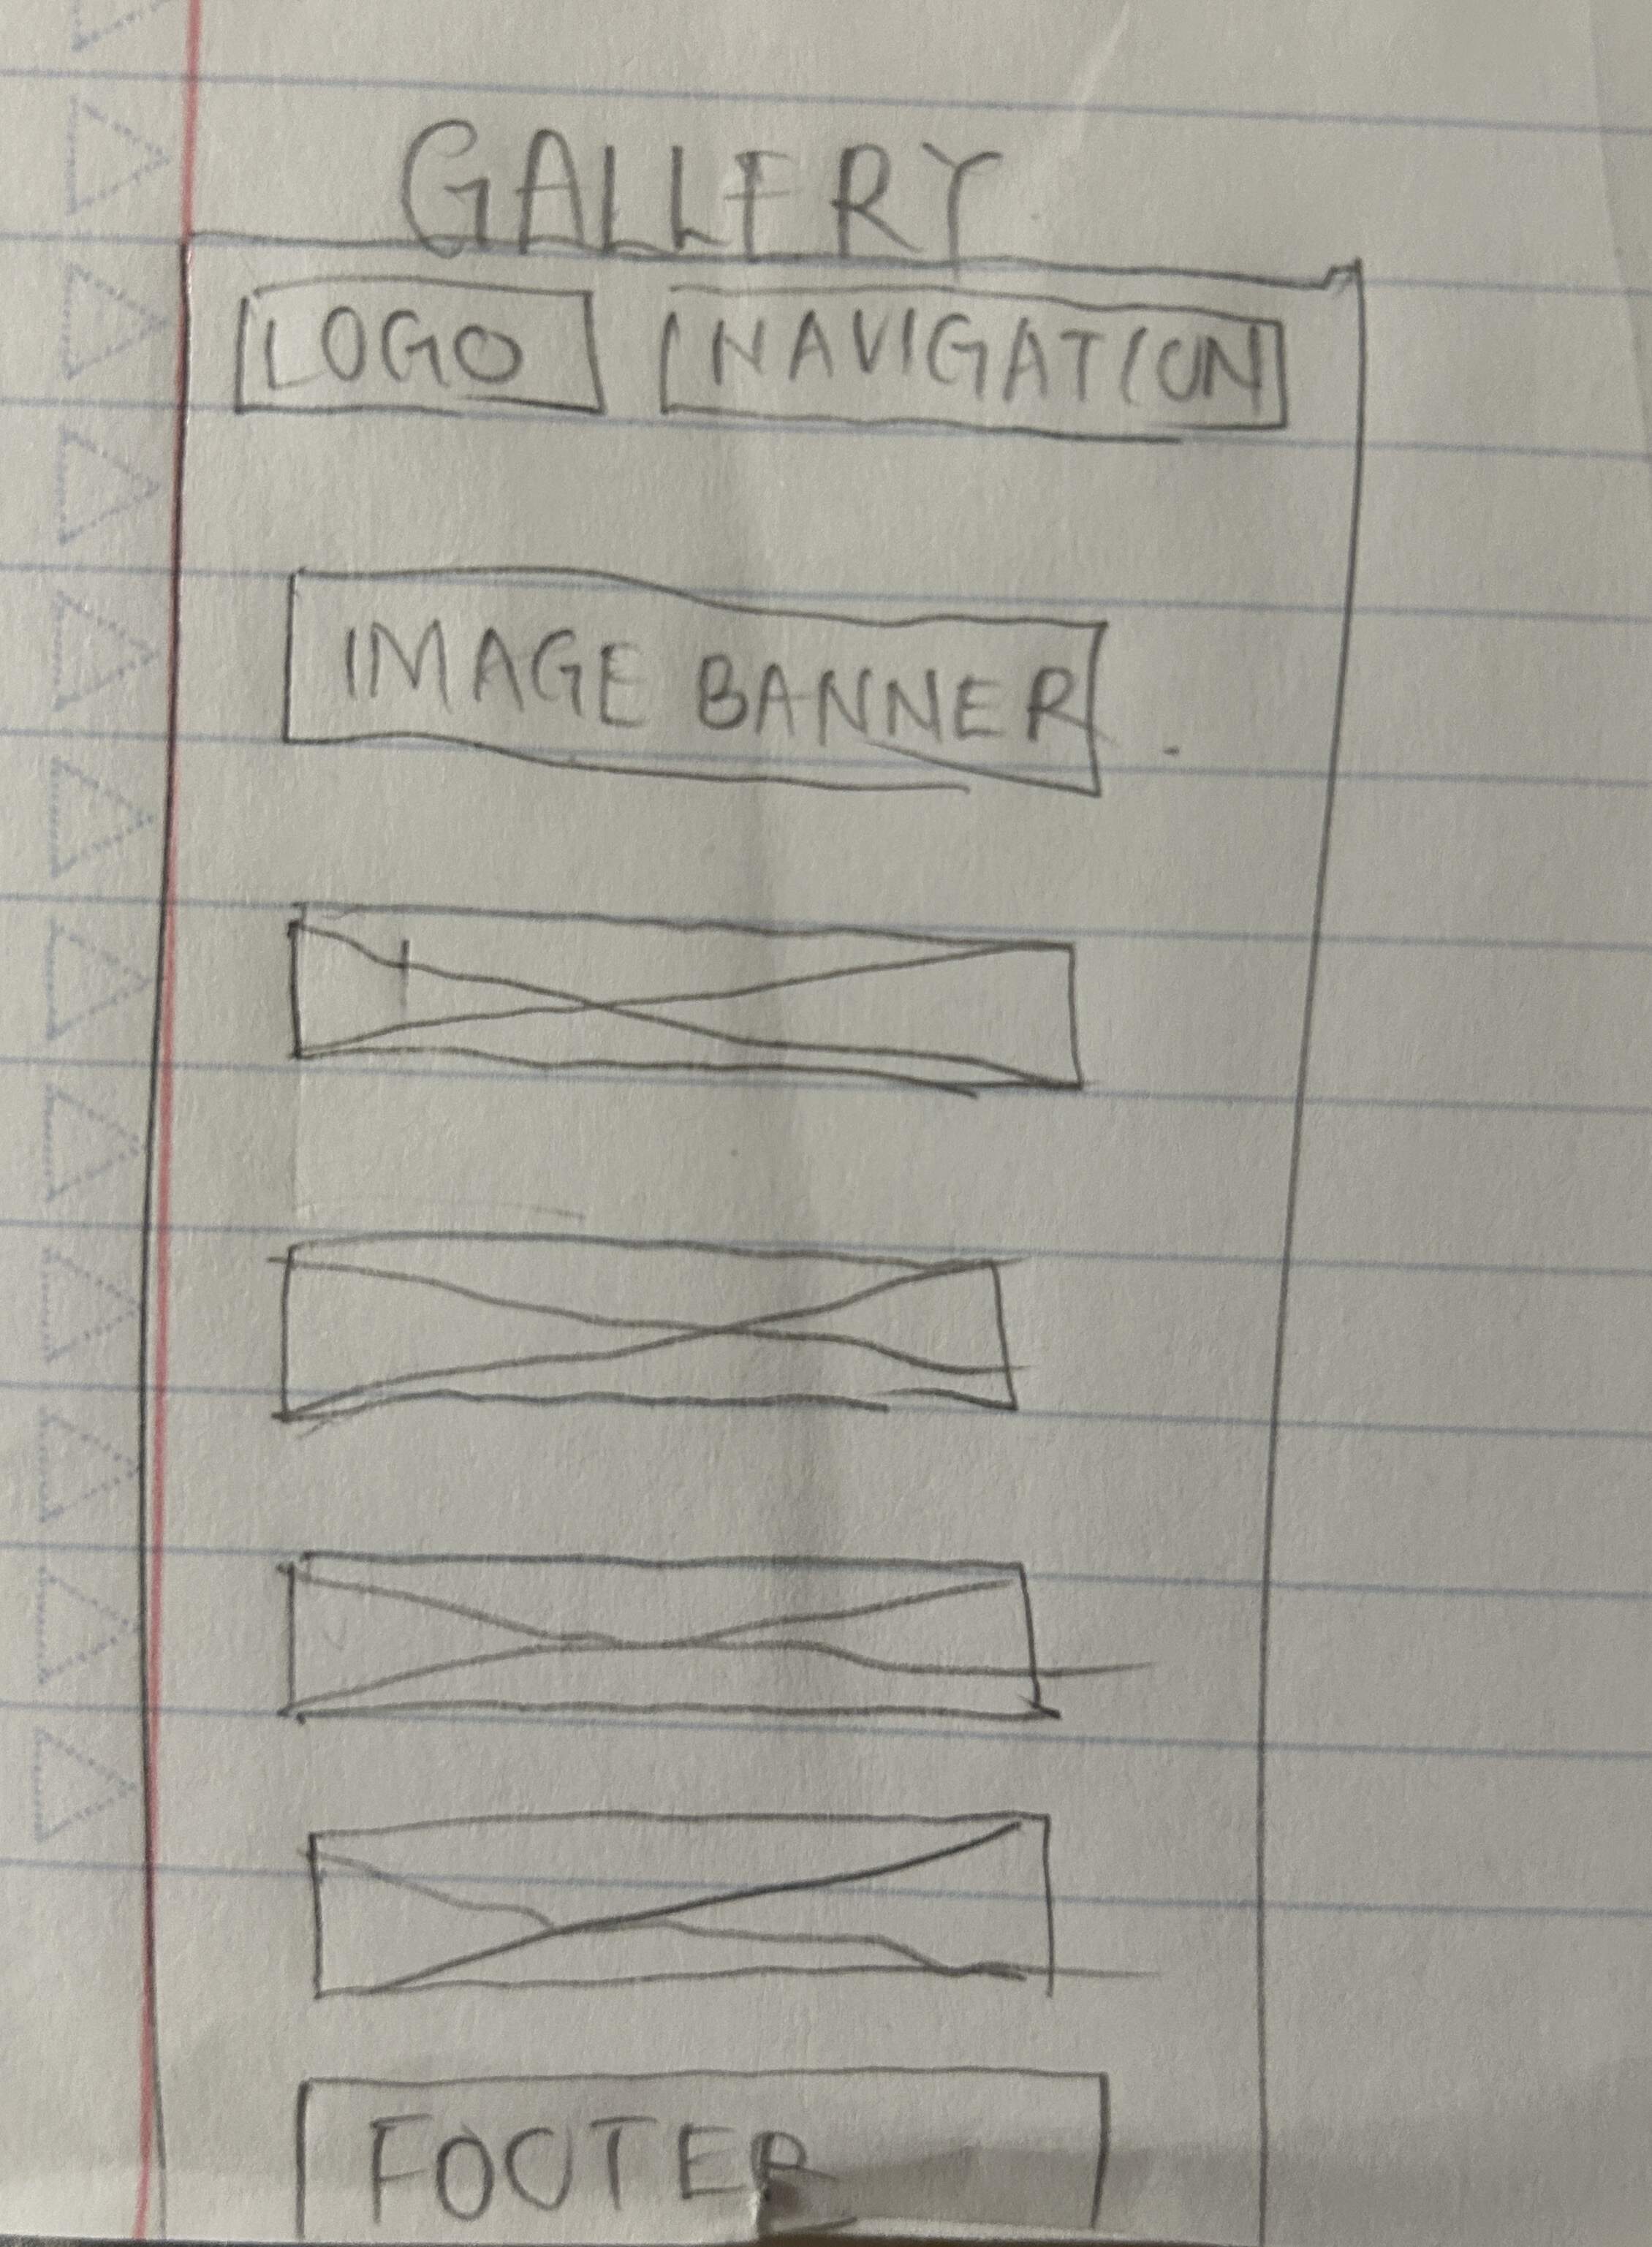 GALLERY
LOGO NAVIGATION
IMAGE BANNER
FOOTER